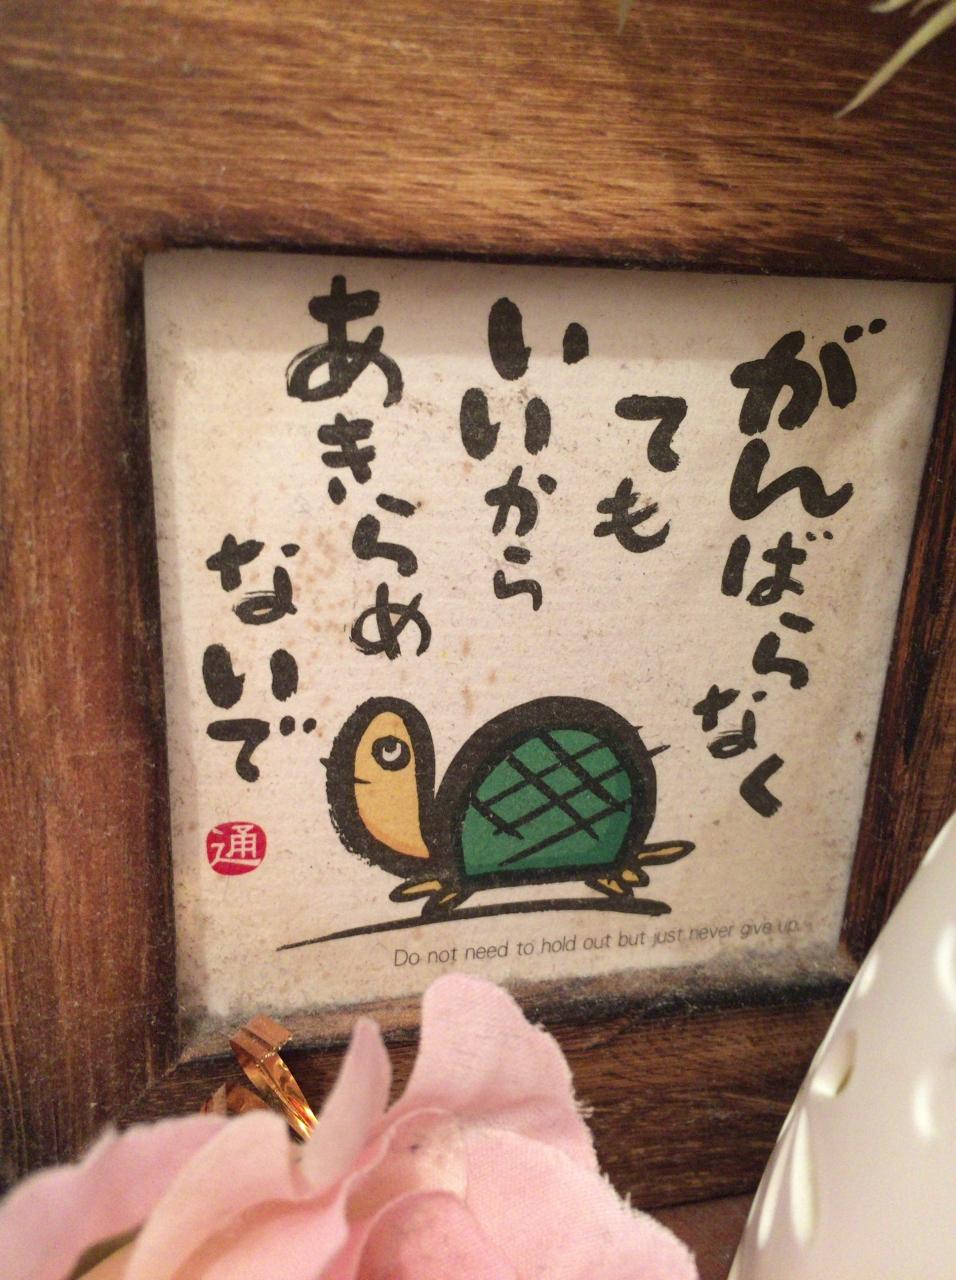 がんばらなく
ても
いいから
あきらめ
ないで
通
Do not need to hold out but just never give up.